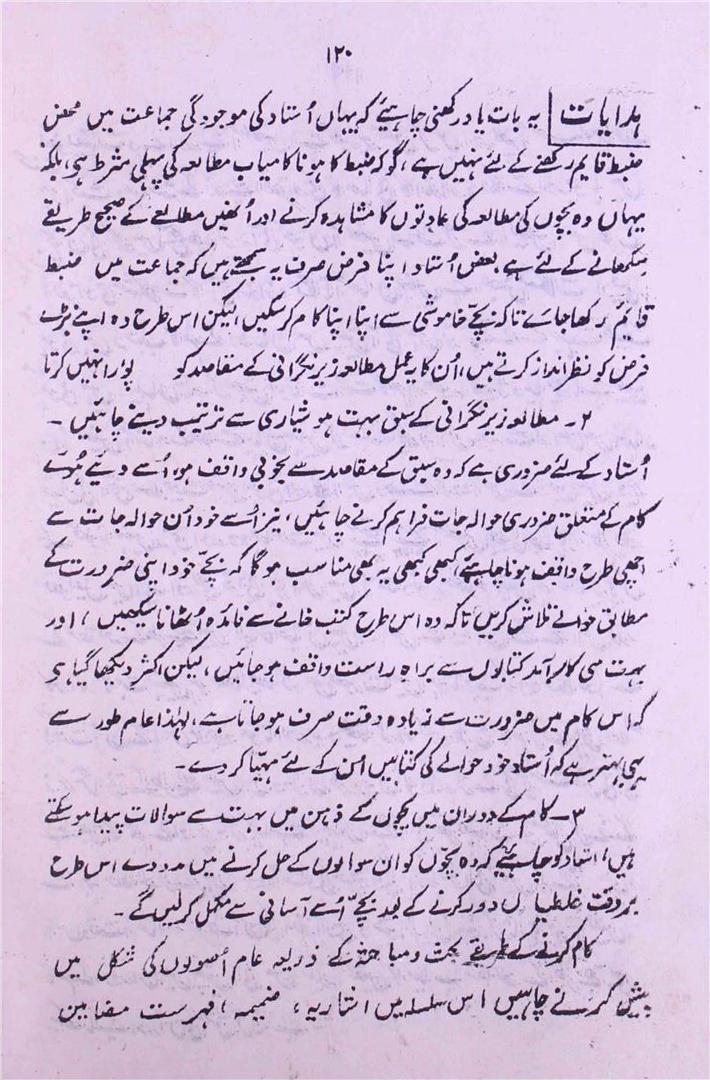 ۱۲۰
ہدایات یہ بات یاد رکھنی چاہیئے کہ یہاں اُستاد کی موجودگی جماعت میں محض
ضبط قایم رکھنے کے لئے نہیں ہے، گو کہ ضبط کا ہونا کامیاب مطالعہ کی پہلی شرط ہی، بلکہ
یہاں وہ بچوں کی مطالعہ کی عادتوں کا مشاہدہ کرنے اور اُنھیں مطالعے کے صحیح طریقے
سکھانے کے لئے ہے بعض اُستاد اپنا فرض صرف یہ سمجھتے ہیں کہ جماعت میں ضبط
قائم رکھا جائے تاکہ بچّے خاموشی سے اپنا اپنا کام کرسکیں، لیکن اس طرح وہ اپنے بڑے
فرض کو نظر انداز کرتے ہیں، اُن کا یہ عمل مطالعہ زیر نگرانی کے مقاصد کو پورا نہیں کرتا
۲۔ مطالعہ زیر نگرانی کے سبق بہت ہوشیاری سے ترتیب دینے چاہئیں۔
اُستاد کے لئے ضروری ہے کہ وہ سبق کے مقاصد سے بخوبی واقف ہو، اُسے دیئے ہوئے
کام کے متعلق ضروری حوالہ جات فراہم کرنے چاہئیں، نیز اُسے خود اُن حوالہ جات سے
اچھی طرح واقف ہونا چاہیئے، کبھی کبھی یہ بھی مناسب ہوگا کہ بچّے خود اپنی ضرورت کے
مطابق حوالے تلاش کریں تاکہ وہ اس طرح کتب خانے سے فائدہ اُٹھانا سیکھیں، اور
بہت سی کارآمد کتابوں سے براہِ راست واقف ہوجائیں، لیکن اکثر دیکھا گیا ہی
کہ اس کام میں ضرورت سے زیادہ وقت صرف ہوجاتا ہے، لہٰذا عام طور سے
یہی بہتر ہے کہ اُستاد خود حوالے کی کتابیں اس کے لئے مہیّا کردے۔
۳۔ کام کے دوران میں بچوں کے ذہن میں بہت سے سوالات پیدا ہوسکتے
ہیں، استاد کو چاہیئے کہ وہ بچّوں کو ان سوالوں کے حل کرنے میں مدد دے اس طرح
بروقت غلطیاں دور کرنے کے بعد بچّے اُسے آسانی سے مکمل کرلیں گے۔
کام کرنے کے طریقے بحث و مباحثہ کے ذریعہ عام اُصولوں کی شکل میں
پیش کرنے چاہیں اس سلسلہ میں اشاریہ، ضمیمہ، فہرست مضامین